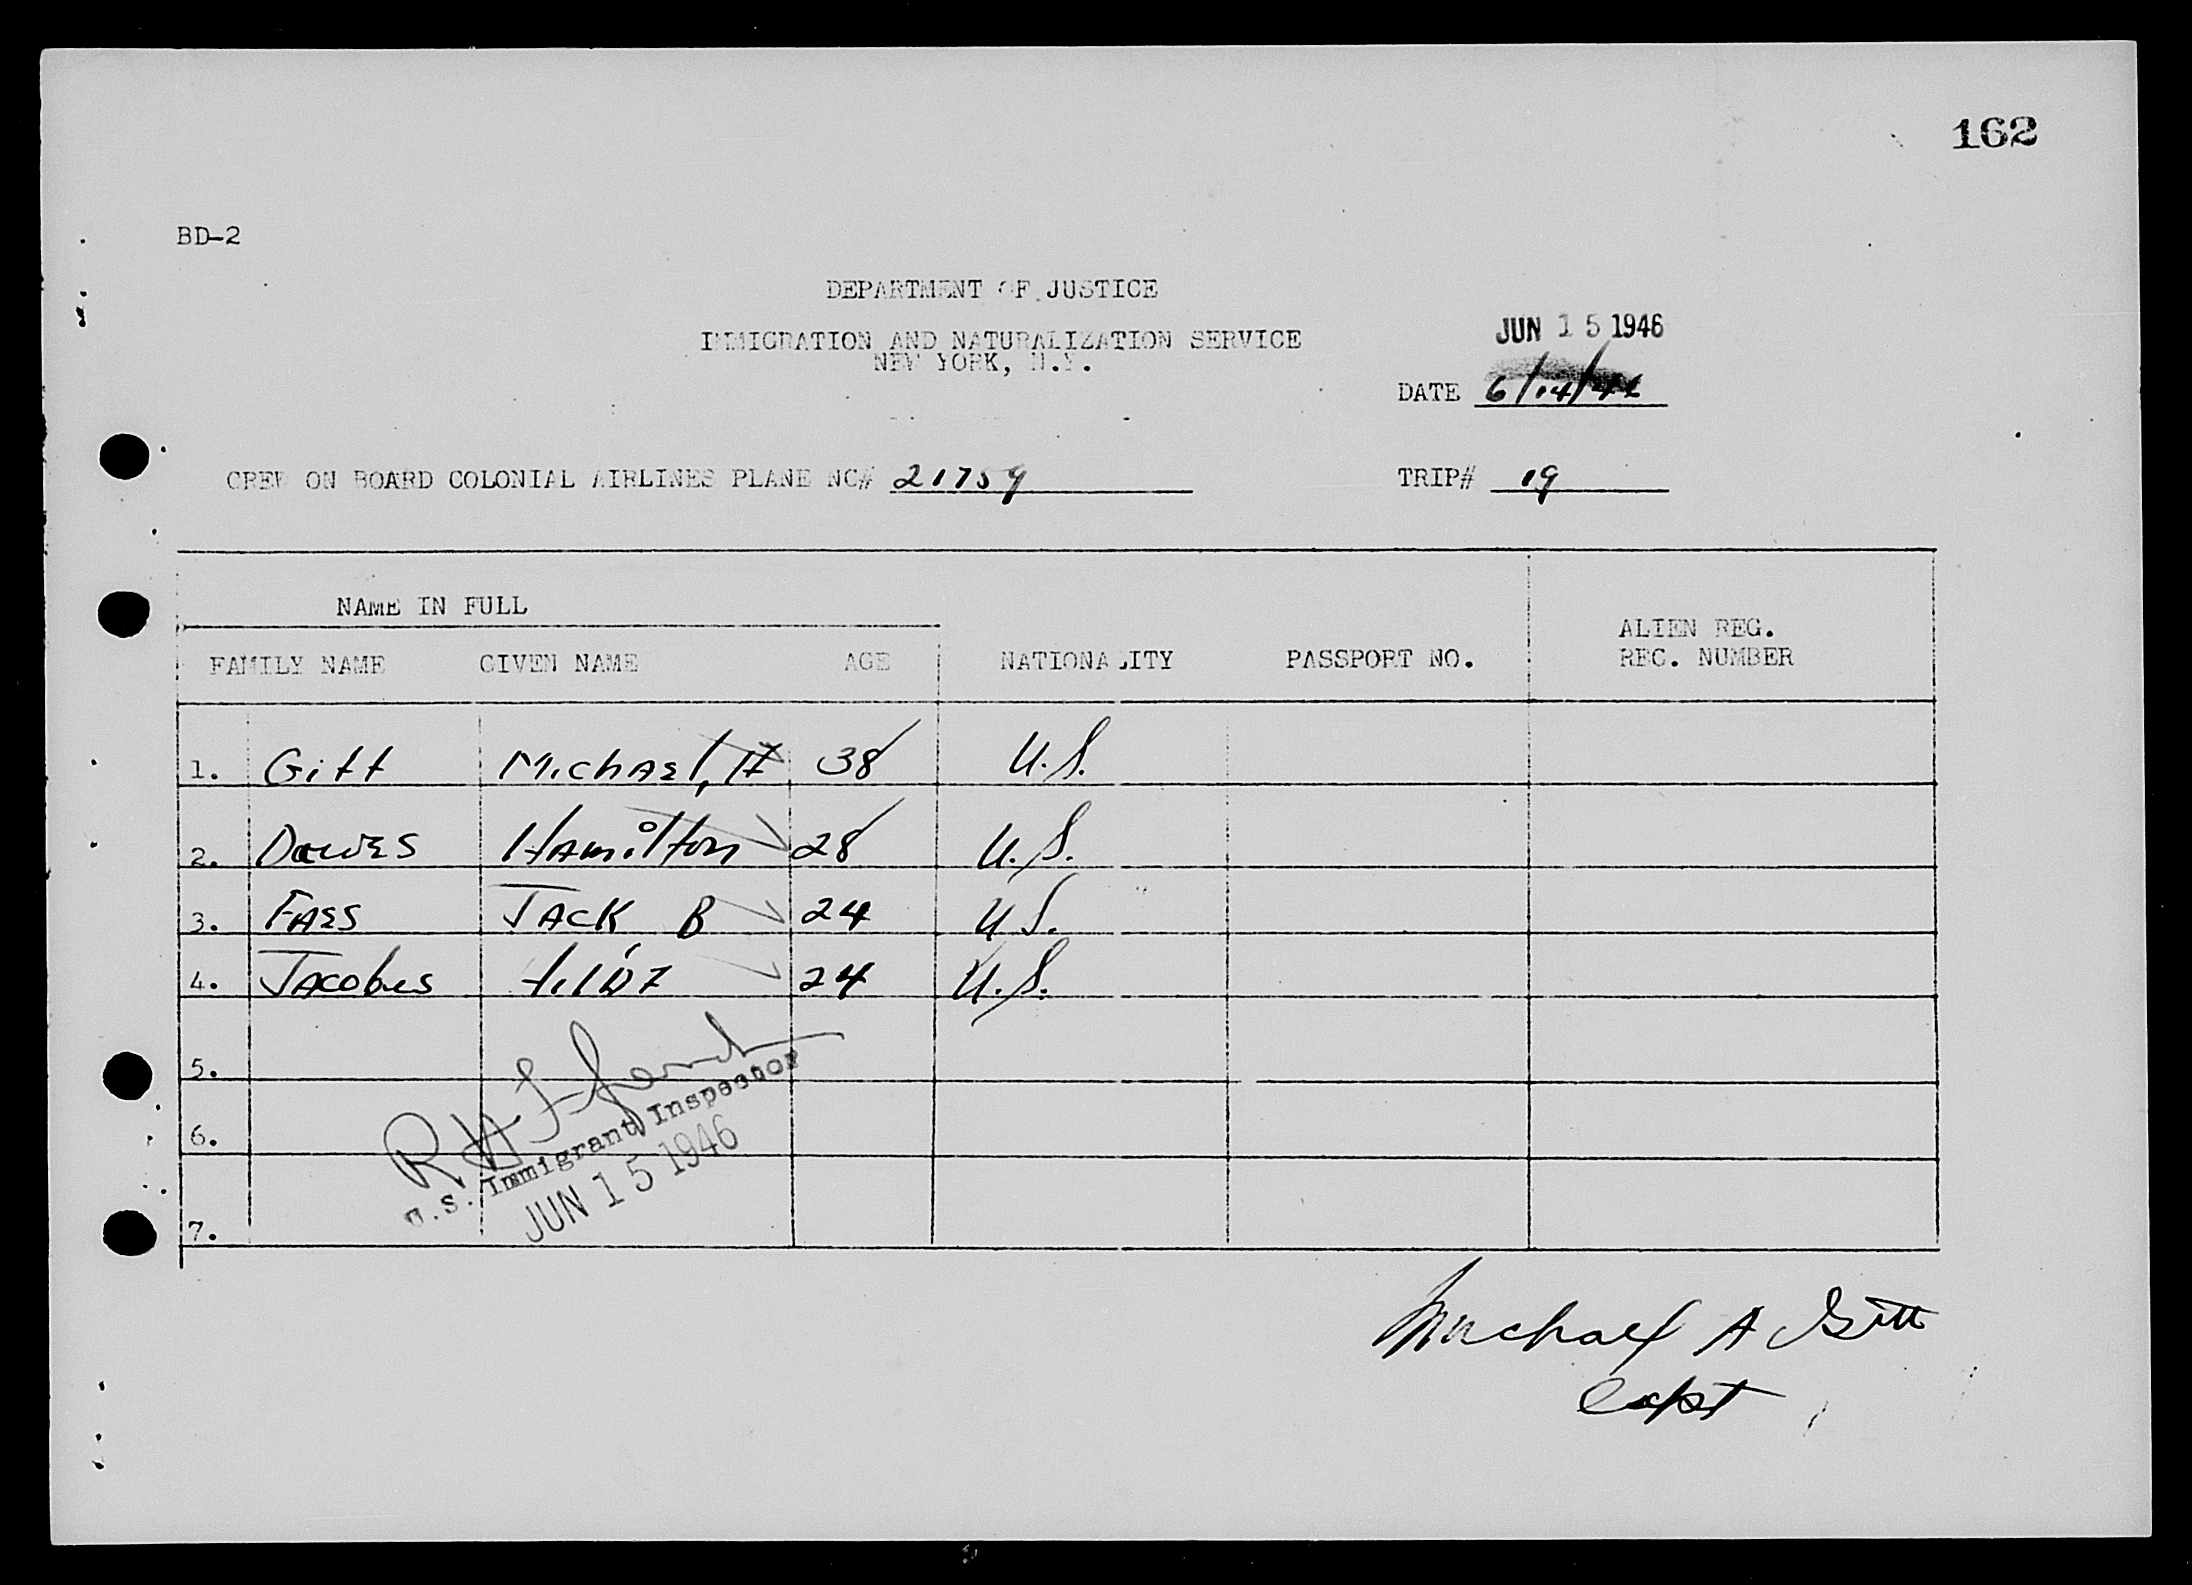 162
BD-2
DEPARTMENT OF JUSTICE
IMMIGRATION AND NATURALIZATION SERVICE
NEW YORK, N.Y.
JUN 15 1946
DATE 6/14/46
CREW ON BOARD COLONIAL AIRLINES PLANE NC# 21759
TRIP# 19
NAME IN FULL
ALIEN REG.
FAMILY NAME GIVEN NAME AGE NATIONALITY PASSPORT NO. REC. NUMBER
1. Gitt Michael, A 38 U.S.
2. Dawes Hamilton 28 U.S.
3. Fass Jack B 24 U.S.
4. Jacobus 24 U.S.
5.
R H
U.S. Immigrant Inspector
6.
JUN 15 1946
7.
Michael A Gitt
Capt